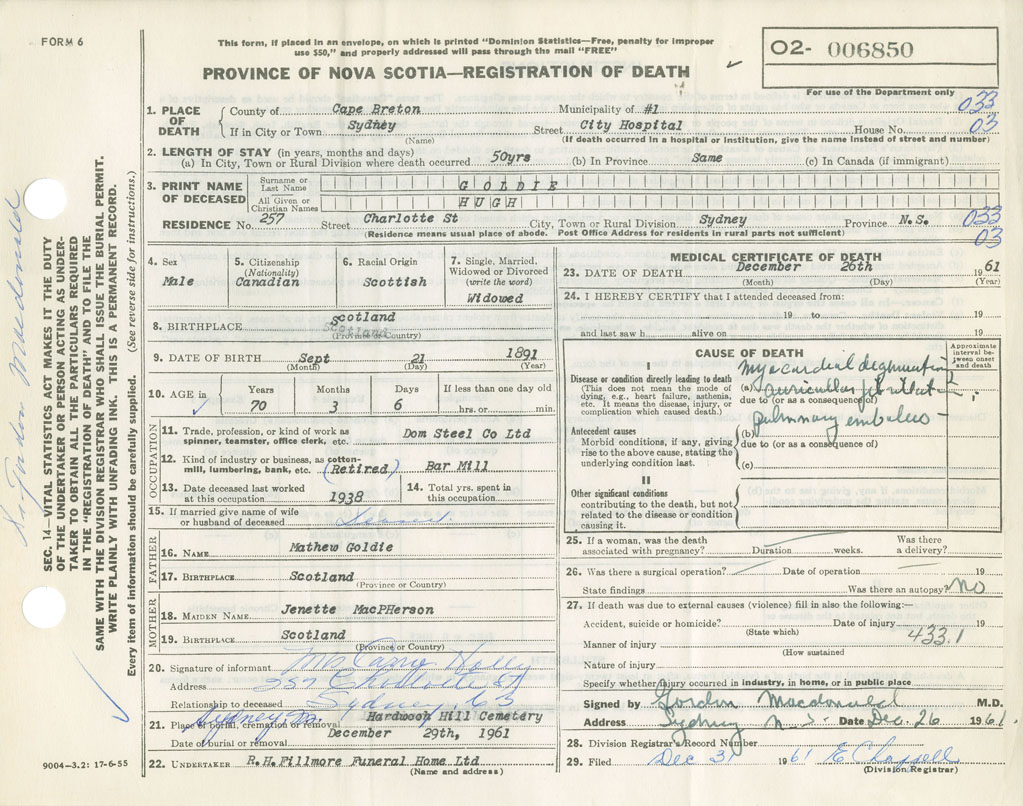 FORM 6
This form, if placed in an envelope, on which is printed "Dominion Statistics—Free, penalty for improper
use $50," and properly addressed will pass through the mail "FREE"
PROVINCE OF NOVA SCOTIA—REGISTRATION OF DEATH
02- 006850
For use of the Department only
1. PLACE OF DEATH County of Cape Breton Municipality of #1 033
If in City or Town Sydney Street City Hospital House No. 03
(Name) (If death occurred in a hospital or institution, give the name instead of street and number)
2. LENGTH OF STAY (in years, months and days)
(a) In City, Town or Rural Division where death occurred 50yrs (b) In Province Same (c) In Canada (if immigrant)
3. PRINT NAME OF DECEASED Surname or Last Name GOLDIE
All Given or Christian Names HUGH
RESIDENCE No. 257 Street Charlotte St City, Town or Rural Division Sydney Province N.S. 033
(Residence means usual place of abode. Post Office Address for residents in rural parts not sufficient) 03
4. Sex Male
5. Citizenship (Nationality) Canadian
6. Racial Origin Scottish
7. Single, Married, Widowed or Divorced (write the word) Widowed
8. BIRTHPLACE Scotland
(Province or Country)
9. DATE OF BIRTH Sept 21 1891
(Month) (Day) (Year)
10. AGE in Years 70 Months 3 Days 6 If less than one day old hrs. or min.
OCCUPATION
11. Trade, profession, or kind of work as spinner, teamster, office clerk, etc. Dom Steel Co Ltd
12. Kind of industry or business, as cotton-mill, lumbering, bank, etc. (Retired) Bar Mill
13. Date deceased last worked at this occupation 1938
14. Total yrs. spent in this occupation
15. If married give name of wife or husband of deceased
FATHER
16. NAME Mathew Goldie
17. BIRTHPLACE Scotland
(Province or Country)
MOTHER
18. MAIDEN NAME Jenette MacPHerson
19. BIRTHPLACE Scotland
(Province or Country)
20. Signature of informant
Address 257 Charlotte St
Relationship to deceased Sydney
21. Place of burial, cremation or removal Hardwood Hill Cemetery
Date of burial or removal December 29th, 1961
22. UNDERTAKER R.H.Fillmore Funeral Home Ltd
(Name and address)
MEDICAL CERTIFICATE OF DEATH
23. DATE OF DEATH December 26th 1961
(Month) (Day) (Year)
24. I HEREBY CERTIFY that I attended deceased from:
19 to 19
and last saw h alive on 19
CAUSE OF DEATH
Approximate interval between onset and death
I
Disease or condition directly leading to death
(This does not mean the mode of dying, e.g., heart failure, asthenia, etc. It means the disease, injury, or complication which caused death.)
(a) Myocardial degeneration
auricular
due to (or as a consequence of)
pulmonary embolus
Antecedent causes
Morbid conditions, if any, giving rise to the above cause, stating the underlying condition last.
(b)
due to (or as a consequence of)
(c)
II
Other significant conditions
contributing to the death, but not related to the disease or condition causing it.
25. If a woman, was the death associated with pregnancy? Duration weeks. Was there a delivery?
26. Was there a surgical operation? Date of operation 19
State findings Was there an autopsy? No
27. If death was due to external causes (violence) fill in also the following:—
Accident, suicide or homicide? Date of injury 19
(State which) 433.1
Manner of injury
(How sustained
Nature of injury
Specify whether injury occurred in industry, in home, or in public place
Signed by Gordon Macdonald M.D.
Address Sydney N.S. Date Dec. 26 1961.
28. Division Registrar's Record Number
29. Filed Dec 31 1961
(Division Registrar)
SEC. 14—VITAL STATISTICS ACT MAKES IT THE DUTY
OF THE UNDERTAKER OR PERSON ACTING AS UNDER-
TAKER TO OBTAIN ALL THE PARTICULARS REQUIRED
IN THE "REGISTRATION OF DEATH" AND TO FILE THE
SAME WITH THE DIVISION REGISTRAR WHO SHALL ISSUE THE BURIAL PERMIT.
WRITE PLAINLY WITH UNFADING INK. THIS IS A PERMANENT RECORD.
Every item of information should be carefully supplied. (See reverse side for instructions.)
Gordon Macdonald
9004—3.2: 17-6-55